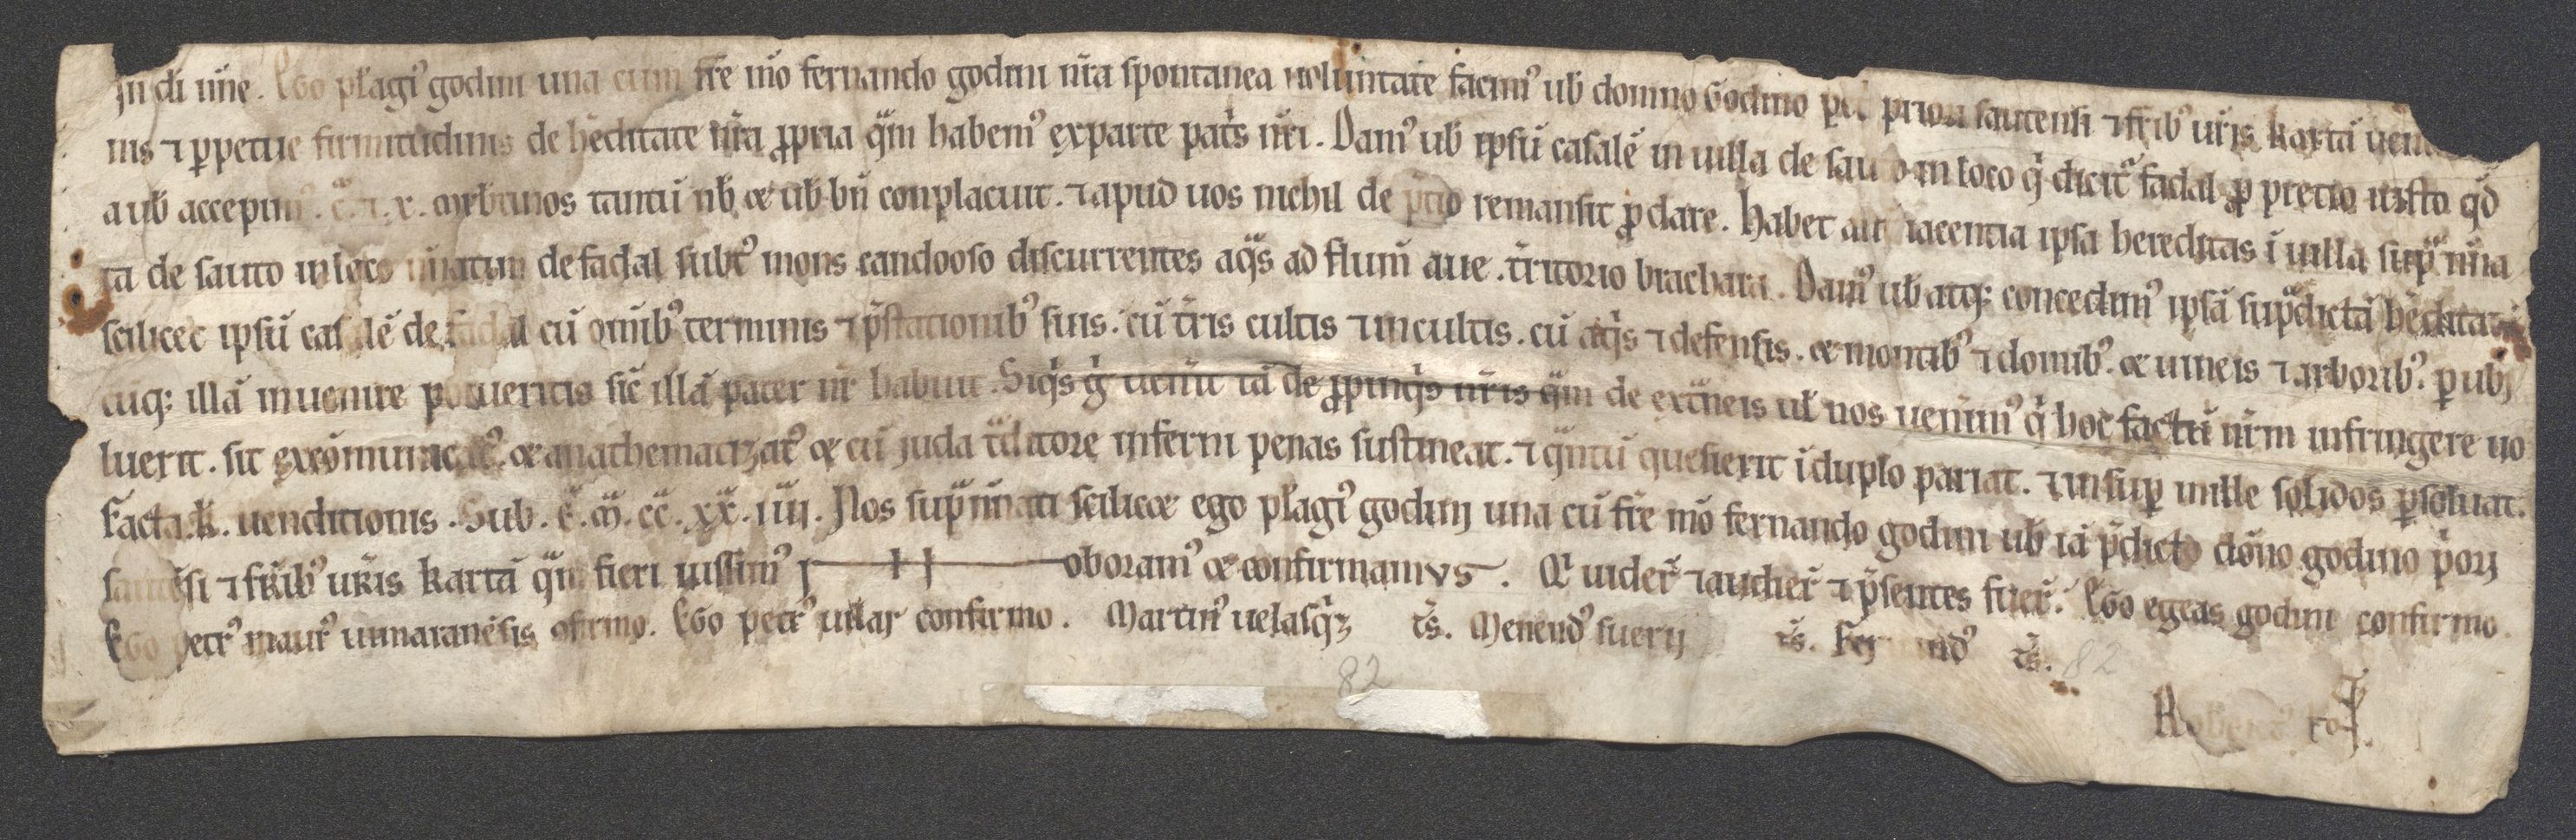 In dī nn̄e. Ego pl̄agi' godini una cum fr̄e mō fernando godini nr̄a spontanea uoluntate facim' ub̄ domno Godino priori sautensi ⁊ fr̄ib' ur̄is kartā uen
nis ⁊ ꝑpetue firmitudinis de hēditate nr̄a ꝓpria qͣm habem' ex parte pat̄s nr̄i. Dam' ub̄ ipsū casalē in uilla de sauto in loco qͥ dicit᷑ fadal ꝓ precio iusto qd̄
a ub̄ accepim'. c̄. ⁊. x. mrb̄tinos tantū nb̄ & ub̄ bn̄ conplacuit. ⁊ apud uos nichil de p̄cio remansit ꝓ dare. Habet aut̄ iacentia ipsa hereditas ī uilla supͣ nn̄a
ta de sauto in loco de fadal subt᷑ mons candooso discurrentes aqͣs ad flum̄ aue. t̄ritorio bracharā. Dam' ub̄ atq; concedim' ipsā supͣdictā hēditatē
scilicet ipsū casalē de fadal cū om̄ib' terminis ⁊ p̄stationib' suis. cū t̄ris cultis ⁊ incultis. cū aqͥs ⁊ defensis. & montib' ⁊ domib'. & uineis ⁊ arborib'. ꝑ ubi
cuq; illā inuenire potueritis sic̄ illā pater nr̄ habuit. Siqͥs gͥ uen̄it tā de ꝓpinqͥs nr̄is qͣm de extͣneis ul̄ nos uenim' qͥ hoc factū nr̄m infringere uo
luerit. sit excōmunicat'. & anathematizat' & cū iuda tͣditore inferni penas sustineat. ⁊ qͣntū quesierit ī duplo pariat. ⁊ insuꝑ mille solidos ꝑsoluat.
Facta. k̄. uenditionis. Sub. ē. ꝏ. cc. xx. iiij. Nos supͣ nn̄ati scilic& ego pl̄agi' godinj una cū fr̄e mō fernando godini ub̄ iā p̄dicto dōno godino pͥorj
sautēsi ⁊ fr̄ib' ur̄is kartā qͣm fieri iussim' r oboram' & confirmamus. Qͥ uider̄ ⁊ audier̄ ⁊ p̄sentes fuer̄. Ego egeas godini confirmo
Ego petr' maur' uimaranēsis ꝯfirmo. Ego petr' uilar confirmo. Martin' uelasqͥz t̄s. Menend' suerij t̄s. Fernand' t̄s. 82
82
Robert'